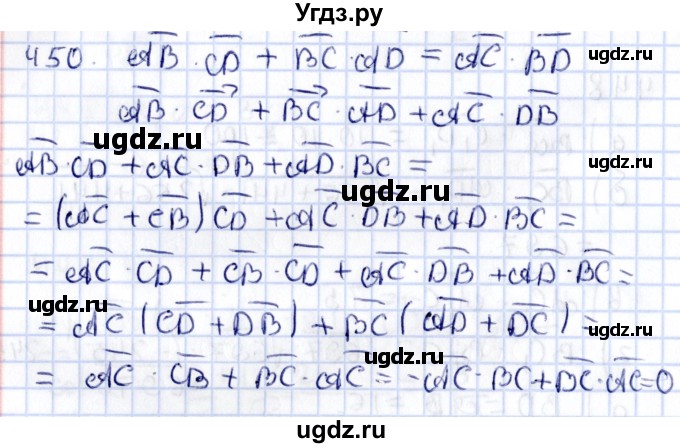 Угдз.ру
450. AB · CD + BC · AD = AC · BD
AB · CD + BC · AD + AC · DB
ugdz.ru
ugdz.ru
AB · CD + AC · DB + AD · BC =
ugdz.ru
= (AC + CB) CD + AC · DB + AD · BC =
= AC · CD + CB · CD + AC · DB + AD · BC =
ugdz.ru
= AC (CD + DB) + BC (AD + DC) =
ugdz.ru
ugdz.ru
= AC · CB + BC · AC = -AC · BC + BC · AC = 0
ugdz.ru